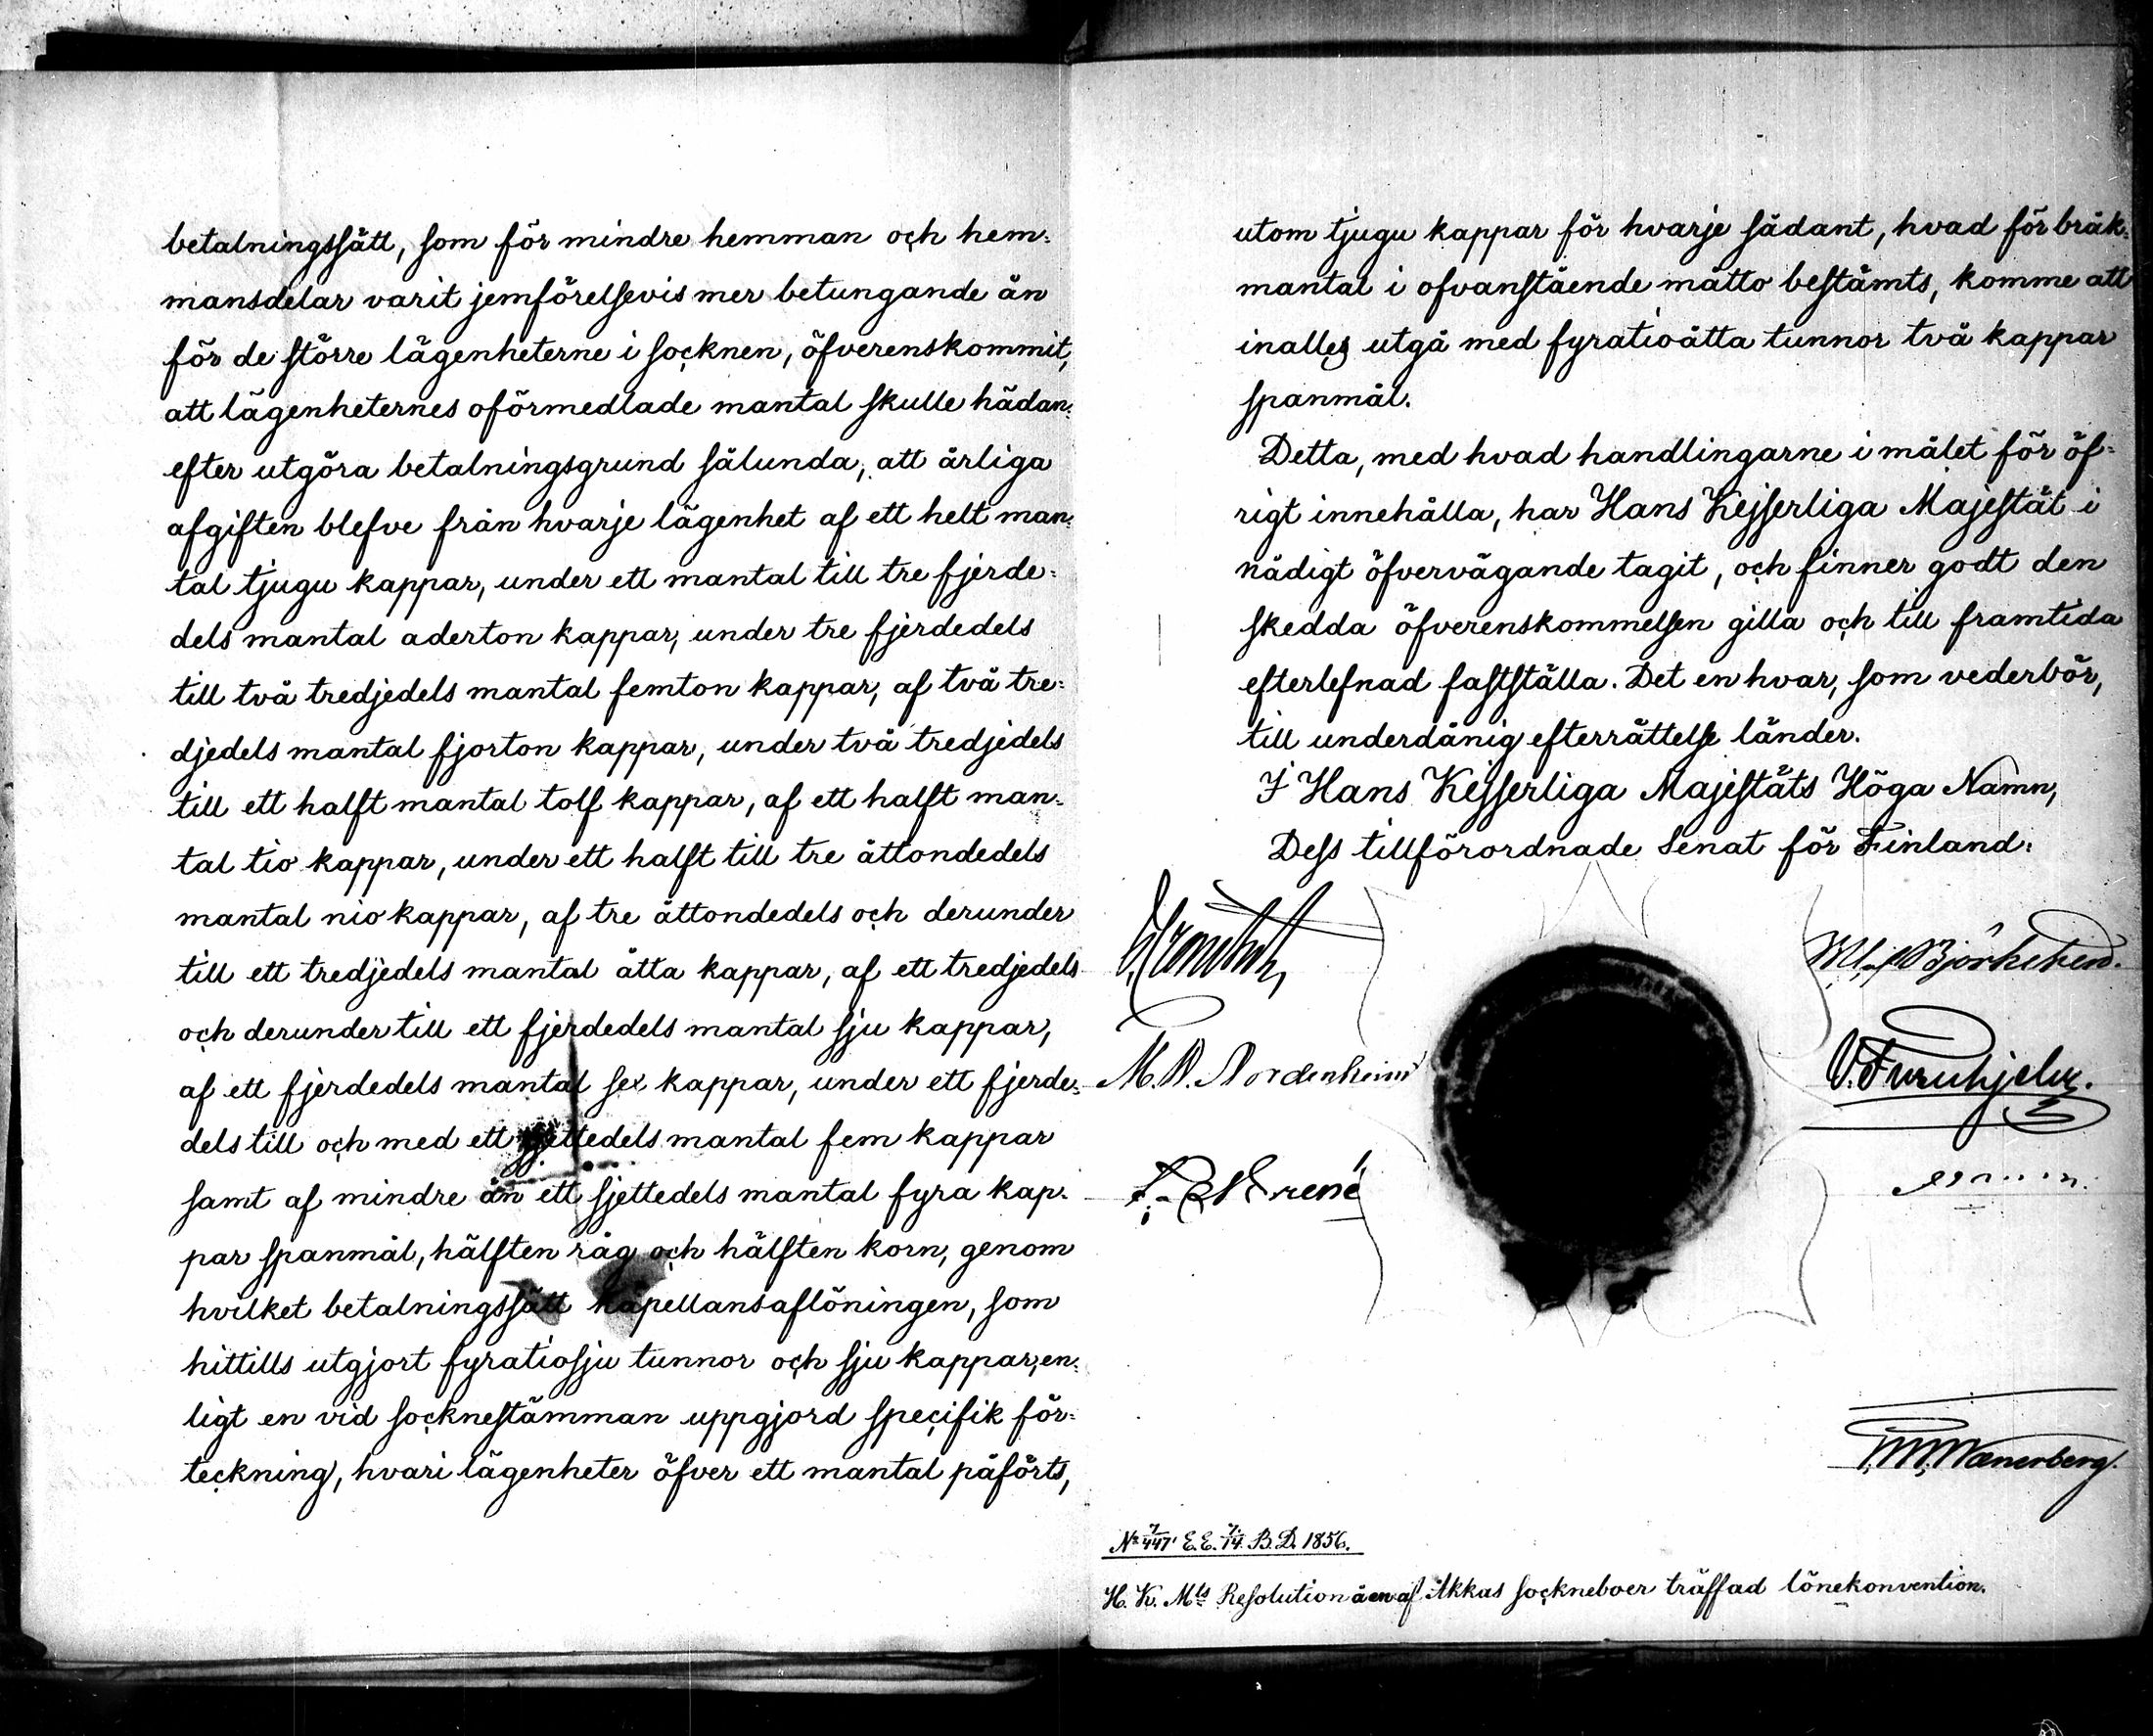 betalningssätt, som för mindre hemman och hem-
mansdelar varit jemförelsevis mer betungande än
för de större lägenheterne i socknen, öfverenskommit,
att lägenheternes oförmedlade mantal skulle hädan-
efter utgöra betalningsgrund sålunda, att årliga
afgiften blefve från hvarje lägenhet af ett helt man-
tal tjugu kappar, under ett mantal till tre fjerde-
dels mantal aderton kappar, under tre fjerdedels
till två tredjedels mantal femton kappar, af två tre-
djedels mantal fjorton kappar, under två tredjedels
till ett halft mantal tolf kappar, af ett halft man-
tal tio kappar, under ett halft till tre åttondedels
mantal nio kappar, af tre åttondedels och derunder
till ett tredjedels mantal åtta kappar, af ett tredjedels
och derunder till ett fjerdedels mantal sju kappar,
af ett fjerdedels mantal sex kappar, under ett fjerde-
dels till och med ett sjettedels mantal fem kappar
samt af mindre än ett sjettedels mantal fyra kap-
par spanmål, hälften råg och hälften korn, genom
hvilket betalningssätt kapellansaflöningen, som
hittills utgjort fyratiosju tunnor och sju kappar, en-
ligt en vid socknestämman uppgjord specifik för-
teckning, hvari lägenheter öfver ett mantal påförts,
utom tjugu kappar för hvarje sådant, hvad för bråk-
mantal i ofvanstående måtto bestämts, komme att
inalles utgå med fyratioåtta tunnor två kappar
spanmål.
Detta, med hvad handlingarne i målet för öf-
rigt innehålla, har Hans Kejserliga Majestät i
nådigt öfvervägande tagit, och finner godt den
skedda öfverenskommelsen gilla och till framtida
efterlefnad fastställa. Det en hvar, som vederbör,
till underdånig efterrättelse länder.
I Hans Kejserliga Majestäts Höga Namn,
Dess tillförordnade Senat för Finland:
af Björksten.
M. W. Nordenheim
O. Furuhjelm.
Wænerberg.
No 7/447 E.E. 7/14. B.D. 1856.
H. K. Mts Resolution å en af Akkas sockneboer träffad lönekonvention.